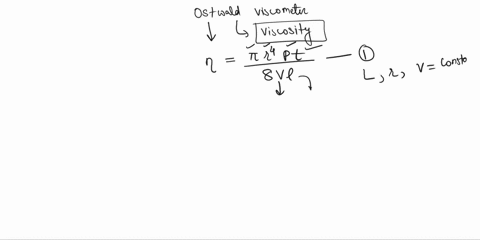 Ostwald viscometer
viscosity
η = π r⁴ P t / 8 V l — ①
L, r, V = consta